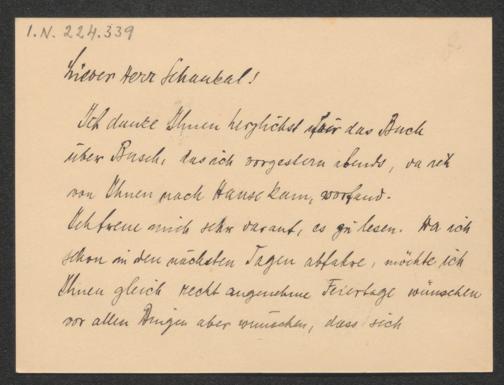 I.N. 224.339
Lieber Herr Schaukal!
Ich danke Ihnen herzlichst für das Buch
über Busch, das ich vorgestern abends, da ich
von Ihnen nach Hause kam, vorfand.
Ich freue mich sehr darauf, es zu lesen. Da ich
schon in den nächsten Tagen abfahre, möchte ich
Ihnen gleich recht angenehme Feiertage wünschen
vor allen Dingen aber wünschen, dass sich